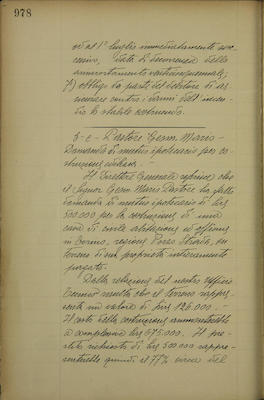 978
vi al 1° luglio immediatamente suc-
cessivo, data di decorrenza dello
ammortamento venticinquennale;
7) obbligo da parte del debitore di as-
sicurare contro i danni dell'incen-
dio lo stabile costruendo.
3 - c - Pastore Geom. Mario -
Domanda di mutuo ipotecario per co-
struzione
Il Direttore Generale riferisce che
il Signor Geom. Mario Pastore ha fatto
domanda di mutuo ipotecario di Lire
500.000 per la costruzione di una
casa di civile abitazione ed officina
in Torino, regione Pozzo Strada, su
terreno di sua proprietà interamente
pagato.
Dalla relazione del nostro Ufficio
Tecnico risulta che il terreno rappre-
senta un valore di Lire 126.000. -
Il costo della costruzione ammonterebbe
a complessive Lire 675.000. Il pre-
stito richiesto di Lire 500.000 rappre-
senterebbe quindi il 77% circa del